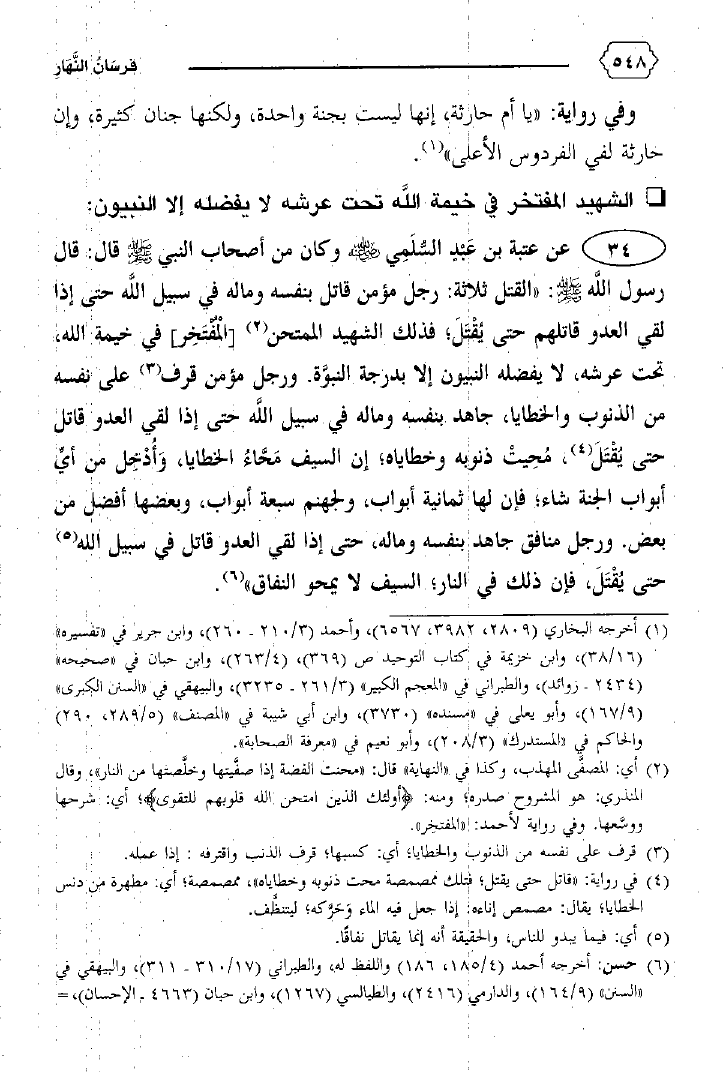 ٥٤٨ فرسَانُ النَّهَار
وفي رواية: «يا أم حارثة، إنها ليست بجنة واحدة، ولكنها جنان كثيرة، وإن
حارثة لفي الفردوس الأعلى»(١).
❑ الشهيد المفتخر في خيمة اللَّه تحت عرشه لا يفضله إلا النبيون:
٣٤ عن عتبة بن عَبْدِ السُّلَمي رضي الله عنه وكان من أصحاب النبي ﷺ قال: قال
رسول اللَّه ﷺ: «القتل ثلاثة: رجل مؤمن قاتل بنفسه وماله في سبيل اللَّه حتى إذا
لقي العدو قاتلهم حتى يُقْتَلَ؛ فذلك الشهيد الممتحن(٢) [الْمُفْتَخِر] في خيمة الله،
تحت عرشه، لا يفضله النبيون إلا بدرجة النبوَّة. ورجل مؤمن قرف(٣) على نفسه
من الذنوب والخطايا، جاهد بنفسه وماله في سبيل اللَّه حتى إذا لقي العدو قاتل
حتى يُقْتَلَ(٤)، مُحِيتْ ذنوبه وخطاياه؛ إن السيف مَحَّاءُ الخطايا، وَأُدْخِل من أيِّ
أبواب الجنة شاء؛ فإن لها ثمانية أبواب، ولجهنم سبعة أبواب، وبعضها أفضل من
بعض. ورجل منافق جاهد بنفسه وماله، حتى إذا لقي العدو قاتل في سبيل الله(٥)
حتى يُقْتَلَ، فإن ذلك في النار؛ السيف لا يمحو النفاق»(٦).
(١) أخرجه البخاري (٢٨٠٩، ٣٩٨٢، ٦٥٦٧)، وأحمد (٢١٠/٣ ـ ٢٦٠)، وابن جرير في «تفسيره»
(٣٨/١٦)، وابن خزيمة في كتاب التوحيد ص (٣٦٩)، (٢٦٣/٤)، وابن حبان في «صحيحه»
(٢٤٣٤ ـ زوائد)، والطبراني في «المعجم الكبير» (٢٦١/٣ ـ ٣٢٣٥)، والبيهقي في «السنن الكبرى»
(١٦٧/٩)، وأبو يعلى في «مسنده» (٣٧٣٠)، وابن أبي شيبة في «المصنف» (٢٨٩/٥، ٢٩٠)
والحاكم في «المستدرك» (٢٠٨/٣)، وأبو نعيم في «معرفة الصحابة».
(٢) أي: المصفَّى المهذب، وكذا في «النهاية» قال: «محنت الفضة إذا صفَّيتها وخلَّصتها من النار»، وقال
المنذري: هو المشروح صدره؛ ومنه: ﴿أولئك الذين امتحن الله قلوبهم للتقوى﴾؛ أي: شرحها
ووسَّعها. وفي رواية لأحمد: «المفتخر».
(٣) قرف على نفسه من الذنوب والخطايا؛ أي: كسبها؛ قرف الذنب واقترفه : إذا عمله.
(٤) في رواية: «قاتل حتى يقتل؛ فتلك مُمصمصة محت ذنوبه وخطاياه»، ممصمصة؛ أي: مطهرة من دنس
الخطايا؛ يقال: مصمص إناءه: إذا جعل فيه الماء وَحَرَّكه؛ ليتنظَّف.
(٥) أي: فيما يبدو للناس، والحقيقة أنه إنما يقاتل نفاقًا.
(٦) حسن: أخرجه أحمد (١٨٥/٤، ١٨٦) واللفظ له، والطبراني (٣١٠/١٧ ـ ٣١١)، والبيهقي في
«السنن» (١٦٤/٩)، والدارمي (٢٤١٦)، والطيالسي (١٢٦٧)، وابن حبان (٤٦٦٣ ـ الإحسان)، =